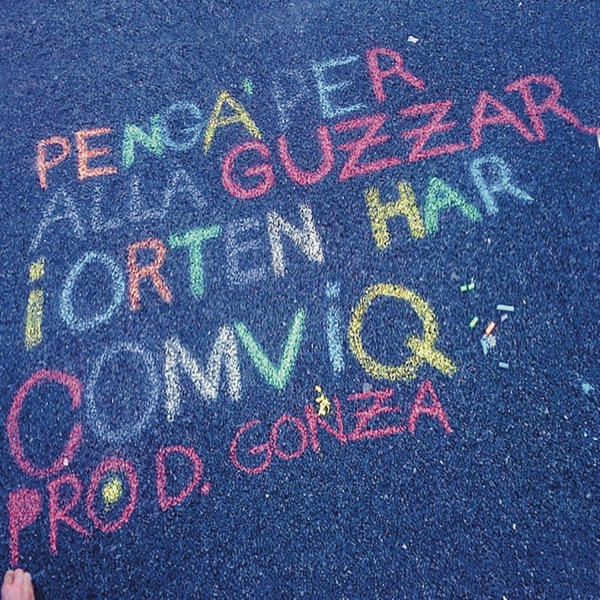 PENGA' PER
ALLA GUZZAR
iORTEN HAR
COMViQ
PROD. GONZA